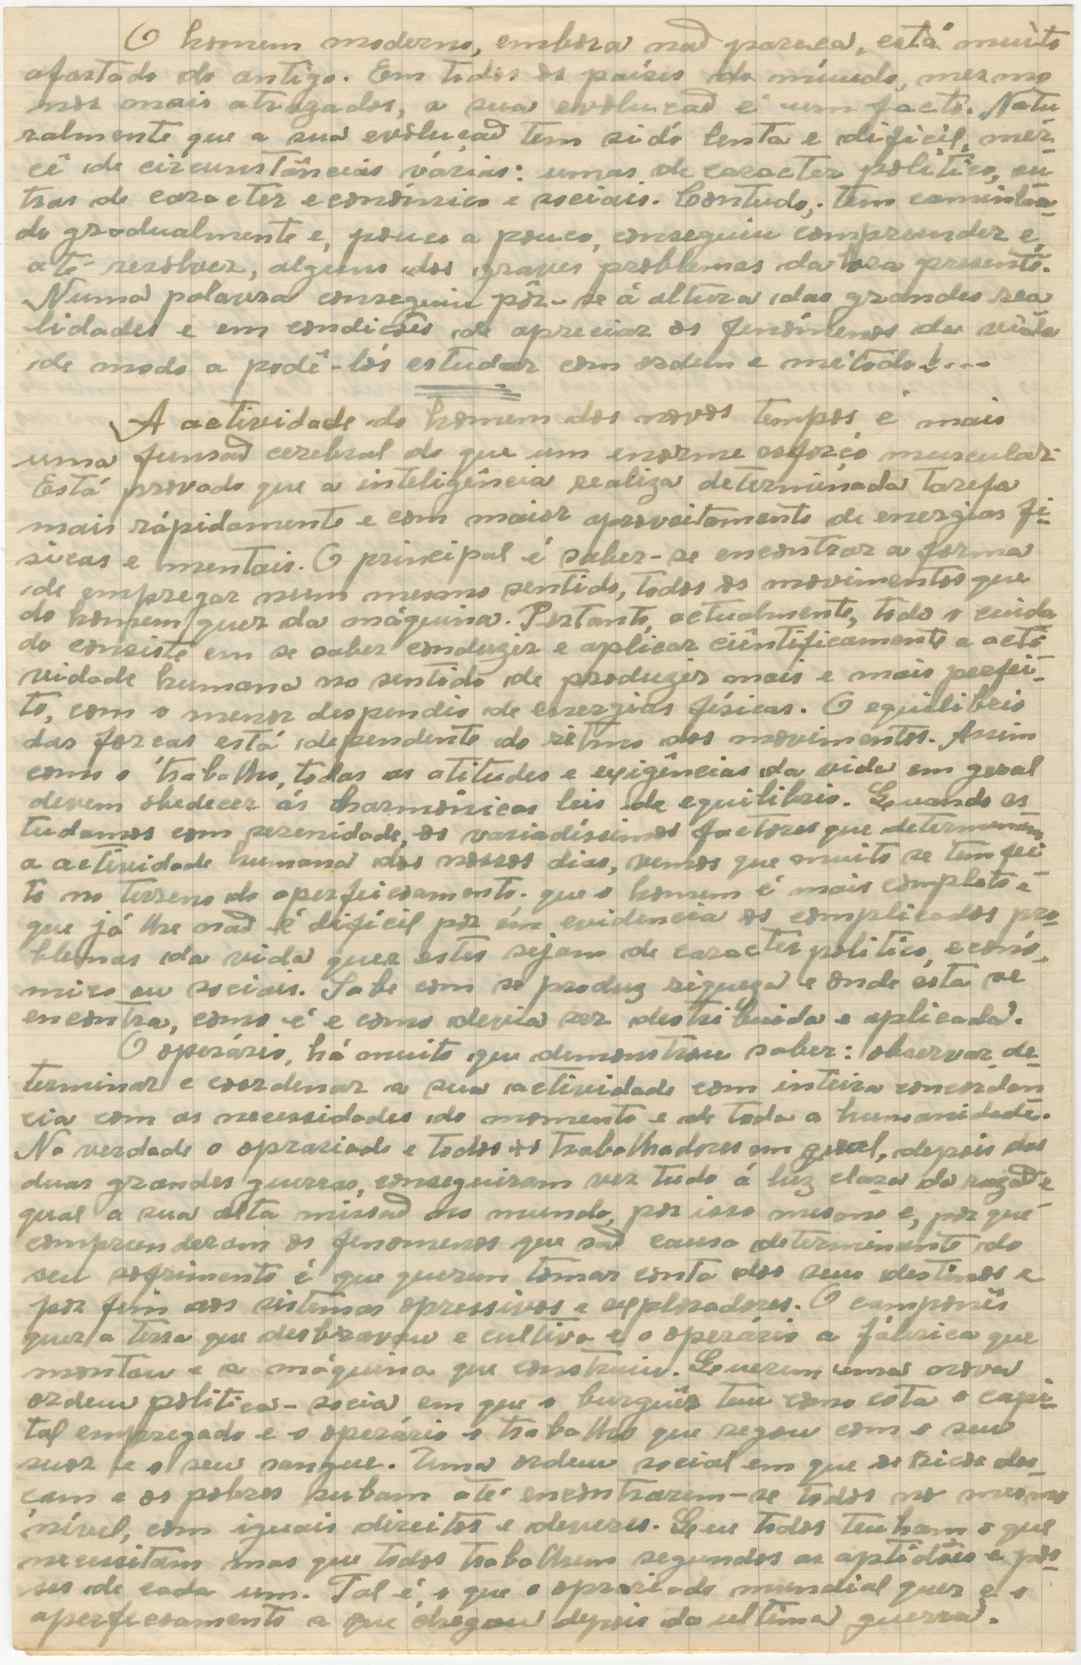 O homem moderno, embora não pareça, está muito
afastado do antigo. Em todos os países do mundo, mesmo
nos mais atrazados, a sua evolução é um facto. Natu
ralmente que a sua evolução tem sido lenta e dificil, mer-
cê de circunstâncias várias: umas de caracter politico, ou
tras de caracter económico e sociais. Contudo, tem caminha-
do gradualmente e, pouco a pouco, conseguiu compreender e,
até resolver, alguns dos graves problemas da hora presente.
Numa palavra conseguiu pôr-se á altura das grandes rea
lidades e em condições de apreciar os fenómenos da vida
de modo a podê-los estudar com ordem e método!...
A actividade do homem dos novos tempos é mais
uma funsão cerebral do que um enorme esforço muscular.
Está provado que a inteligência realiza determinada tarefa
mais rápidamente e com maior aproveitamento de energias fi-
sicas e mentais. O principal é saber-se encontrar a forma
de empregar num mesmo sentido, todos os movimentos quer
do homem quer da máquina. Portanto, actualmente, todo o cuida
do consiste em se saber conduzir e aplicar ciêntificamente a acti
vidade humana no sentido de produzir mais e mais perfei-
to, com o menor dispendio de energias físicas. O equilibrio
das forcas está dependente do ritmo dos movimentos. Assim
como o trabalho, todas as atitudes e exigências da vida em geral
devem obedecer ás harmónicas leis de equilibrio. Quando es
tudamos com serenidade, os variadissimos factores que determinam
a actividade humana dos nossos dias, vemos que muito se tem fei
to no terreno do aperfeicoamento. que o homem é mais completo e
que já lhe não é difícil pôr em evidencia os complicados pro-
blemas da vida quer estes sejam de caracter politico, econó-
mico ou sociais. Sabe com se produz riqueza e onde esta se
encontra, como é e como devia ser destribuida e aplicada.
O operário, há muito que demonstrou saber: observar, de-
terminar e coordenar a sua actividade com inteira concordan
cia com as necessidades do momento e de toda a humanidade.
Na verdade o oprariado e todos os trabalhadores em geral, depois das
duas grandes guerras, conseguiram ver tudo á luz clara da razão e
qual a sua alta missão no mundo, por isso mesmo e, por que
compreenderam os fenomenos que são causa determinante do
seu sofrimento é que querem tomar conta dos seus destinos e
pôr fim aos sistemas opressivos e exploradores. O camponês
quer a terra que desbravou e cultiva e o operário a fábrica que
montou e a máquina que construiu. Querem uma nova
ordem politica-socia em que o burguês tem como cota o capi-
tal empregado e o operário o trabalho que regou com o seu
suor e o seu sangue. Uma ordem social em que os ricos des-
çam e os pobres subam até encontrarem-se todos no mesmo
nível, com iguais direitos e deveres. Que todos tenham o que
necessitam mas que todos trabalhem segundos as aptidões e pos-
ses de cada um. Tal é o que o oprariado mundial quer e o
aperfeicoamento a que chegou depois da ultima guerra.